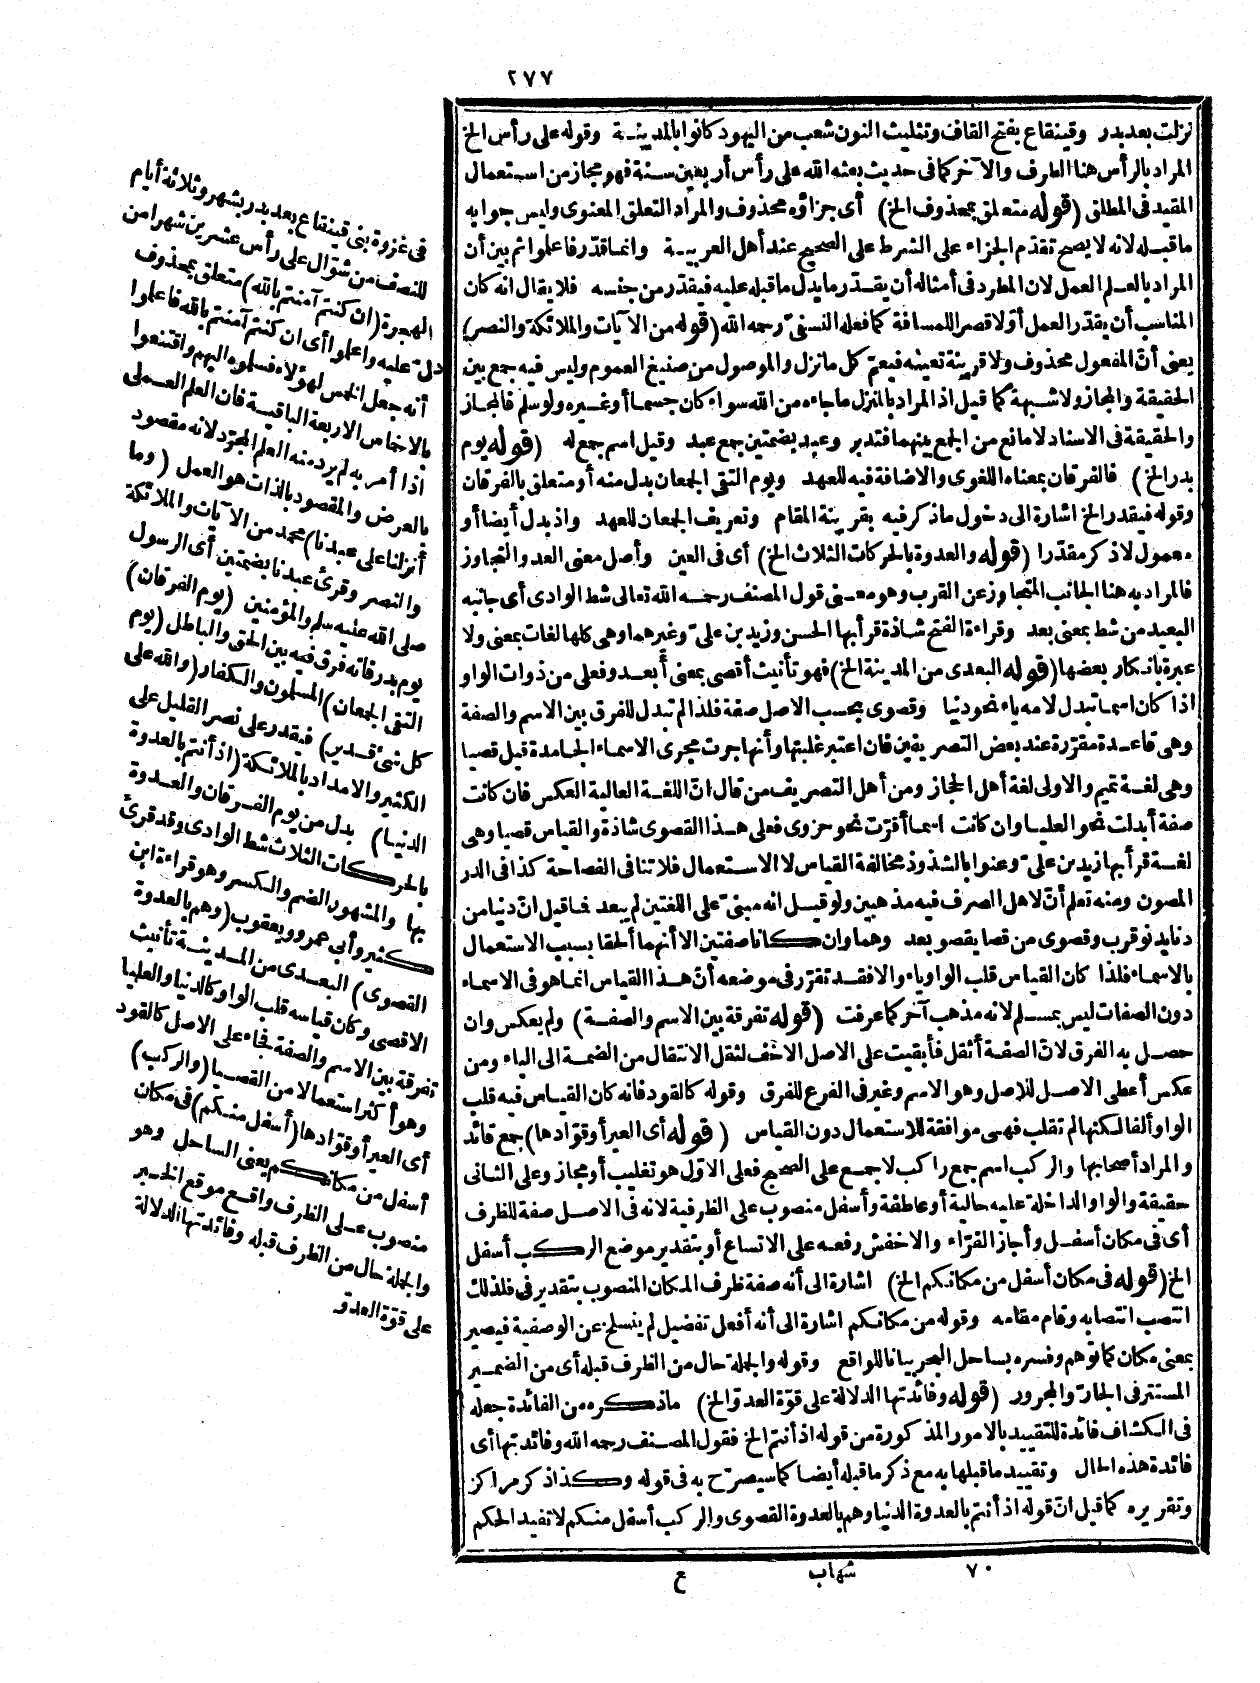 ٢٧٧
نزلت بعد بدر وقينقاع بفتح القاف وتثليث النون شعب من اليهود كانوا بالمدينة وقوله على رأس الخ
المراد بالرأس هنا الطرف والآخر كما فى حديث بعثه الله على رأس أربعين سنة فهو مجاز من استعمال
المقيد فى المطلق (قوله متعلق بمحذوف الخ) أى جزاؤه محذوف والمراد التعلق المعنوى وليس جوابه
ما قبله لانه لا يصح تقدم الجزاء على الشرط على الصحيح عند أهل العربية وانما قدّر فاعلوا ثم بين أن
المراد بالعلم العمل لان المطرد فى أمثاله أن يقدّر ما يدل ما قبله عليه فيقدّر من جنسه فلا يقال انه كان
المناسب أن يقدّر العمل أولا قصر اللمسافة كما فعله النسفىّ رحمه الله (قوله من الآيات والملائكة والنصر)
يعنى أنّ المفعول محذوف ولا قرينة تعينه فيعمّ كل ما نزل والموصول من صيغ العموم وليس فيه جمع بين
الحقيقة والمجاز ولا شبهة كما قيل اذ المراد بالمنزل ما جاءه من الله سواء كان جسما أو غيره ولو سلم فالمجاز
والحقيقة فى الاسناد لا مانع من الجمع بينهما فتدبر وعبد بضمتين جمع عبد وقيل اسم جمع له (قوله يوم
بدر الخ) فالفرقان بمعناه اللغوى والاضافة فيه للعهد ويوم التقى الجمعان بدل منه أو متعلق بالفرقان
وقوله فيقدر الخ اشارة الى دخول ما ذكر فيه بقرينة المقام وتعريف الجمعان للعهد واذ بدل أيضا أو
معمول لاذكر مقدّرا (قوله والعدوة بالحركات الثلاث الخ) أى فى العين وأصل معنى العد والتجاوز
فالمراد به هنا الجانب المتجاوز عن القرب وهو معنى قول المصنف رحمه الله تعالى شط الوادى أى جانبه
البعيد من شط بمعنى بعد وقراءة الفتح شاذة قرأ بها الحسن وزيد بن علىّ وغيرهما وهى كلها لغات بمعنى ولا
عبرة بانكار بعضها (قوله البعدى من المدينة الخ) فهو تأنيث أقصى بمعنى أبعد وفعلى من ذوات الواو
اذا كان اسما تبدل لامه ياء نحو دنيا وقصوى بحسب الاصل صفة فلذا لم تبدل للفرق بين الاسم والصفة
وهى قاعدة مقرّرة عند بعض التصريفيين فان اعتبر غلبتها وأنها جرت مجرى الاسماء الجامدة قيل قصيا
وهى لغة تميم والاولى لغة أهل الحجاز ومن أهل التصريف من قال انّ اللغة العالية العكس فان كانت
صفة أبدلت نحو العليا وان كانت اسما أقرّت نحو حزوى فعلى هذا القصوى شاذة والقياس قصيا وهى
لغة قرأ بها زيد بن علىّ وعنوا بالشذوذ مخالفة القياس لا الاستعمال فلا تنافى الفصاحة كذا فى الدر
المصون ومنه تعلم أنّ لاهل الصرف فيه مذهبين ولو قيل انه مبنىّ على اللغتين لم يبعد فما قيل انّ دنيا من
دنا يدنو قرب وقصوى من قصا يقصو بعد وهما وان كانا صفتين الا أنهما ألحقا بسبب الاستعمال
بالاسماء فلذا كان القياس قلب الواو ياء والا فقد تقرّر فى موضعه أنّ هذا القياس انما هو فى الاسماء
دون الصفات ليس بمسلم لانه مذهب آخر كما عرفت (قوله تفرقة بين الاسم والصفة) ولم يعكس وان
حصل به الفرق لانّ الصفة أثقل فأبقيت على الاصل الاخف لثقل الانتقال من الضمة الى الياء ومن
عكس أعطى الاصل للاصل وهو الاسم وغير فى الفرع للفرق وقوله كالقود فانه كان القياس فيه قلب
الواو ألفا لكنها لم تقلب فهى موافقة للاستعمال دون القياس (قوله أى العير أو قوّادها) جمع قائد
والمراد أصحابها والركب اسم جمع راكب لا جمع على الصحيح فعلى الاوّل هو تغليب أو مجاز وعلى الثانى
حقيقة والواو الداخلة عليه حالية أو عاطفة وأسفل منصوب على الظرفية لانه فى الاصل صفة للظرف
أى فى مكان أسفل وأجاز الفرّاء والاخفش رفعه على الاتساع أو بتقدير موضع الركب أسفل
الخ (قوله فى مكان أسفل من مكانكم الخ) اشارة الى أنه صفة ظرف المكان المنصوب بتقدير فى فلذلك
انتصب انتصابه وقام مقامه وقوله من مكانكم اشارة الى أنه أفعل تفضيل لم ينسلخ عن الوصفية فيصير
بمعنى مكان كما توهم وفسره بساحل البحر بيانا للواقع وقوله والجملة حال من الظرف قبله أى من الضمير
المستتر فى الجارّ والمجرور (قوله وفائدتها الدلالة على قوّة العدوّ الخ) ما ذكره من الفائدة جعله
فى الكشاف فائدة للتقييد بالامور المذكورة من قوله اذ أنتم الخ فقول المصنف رحمه الله وفائدتها أى
فائدة هذه الحال وتقييد ما قبلها به مع ذكر ما قبله أيضا كما سيصرّح به فى قوله وكذا ذكر مراكز
وتقريره كما قيل انّ قوله اذ أنتم بالعدوة الدنيا وهم بالعدوة القصوى والركب أسفل منكم لا تفيد الحكم
٧٠ شهاب ع
فى غزوة بنى قينقاع بعد بدر بشهر وثلاثة أيام
للنصف من شوّال على رأس عشرين شهرا من
الهجرة (ان كنتم آمنتم بالله) متعلق بمحذوف
دلّ عليه واعلموا أى ان كنتم آمنتم بالله فاعلموا
أنه جعل الخمس لهؤلاء فسلموه اليهم واقتنعوا
بالاخماس الاربعة الباقية فان العلم العملى
اذا أمر به لم يرد منه العلم المجرّد لانه مقصود
بالعرض والمقصود بالذات هو العمل (وما
أنزلنا على عبدنا) محمد من الآيات والملائكة
والنصر وقرئ عبدنا بضمتين أى الرسول
صلى الله عليه وسلم والمؤمنين (يوم الفرقان)
يوم بدر فانه فرق فيه بين الحق والباطل (يوم
التقى الجمعان) المسلمون والكفار (والله على
كل شئ قدير) فيقدر على نصر القليل على
الكثير والامداد بالملائكة (اذ أنتم بالعدوة
الدنيا) بدل من يوم الفرقان والعدوة
بالحركات الثلاث شط الوادى وقد قرئ
بها والمشهور الضم والكسر وهو قراءة ابن
كثير وأبى عمرو ويعقوب (وهم بالعدوة
القصوى) البعدى من المدينة تأنيث
الاقصى وكان قياسه قلب الواو كالدنيا والعليا
تفرقة بين الاسم والصفة فجاء على الاصل كالقود
وهو أكثر استعمالا من القصيا (والركب)
أى العير أو قوّادها (أسفل منكم) فى مكان
أسفل من مكانكم يعنى الساحل وهو
منصوب على الظرف واقع موقع الخبر
والجملة حال من الظرف قبله وفائدتها الدلالة
على قوّة العدوّ